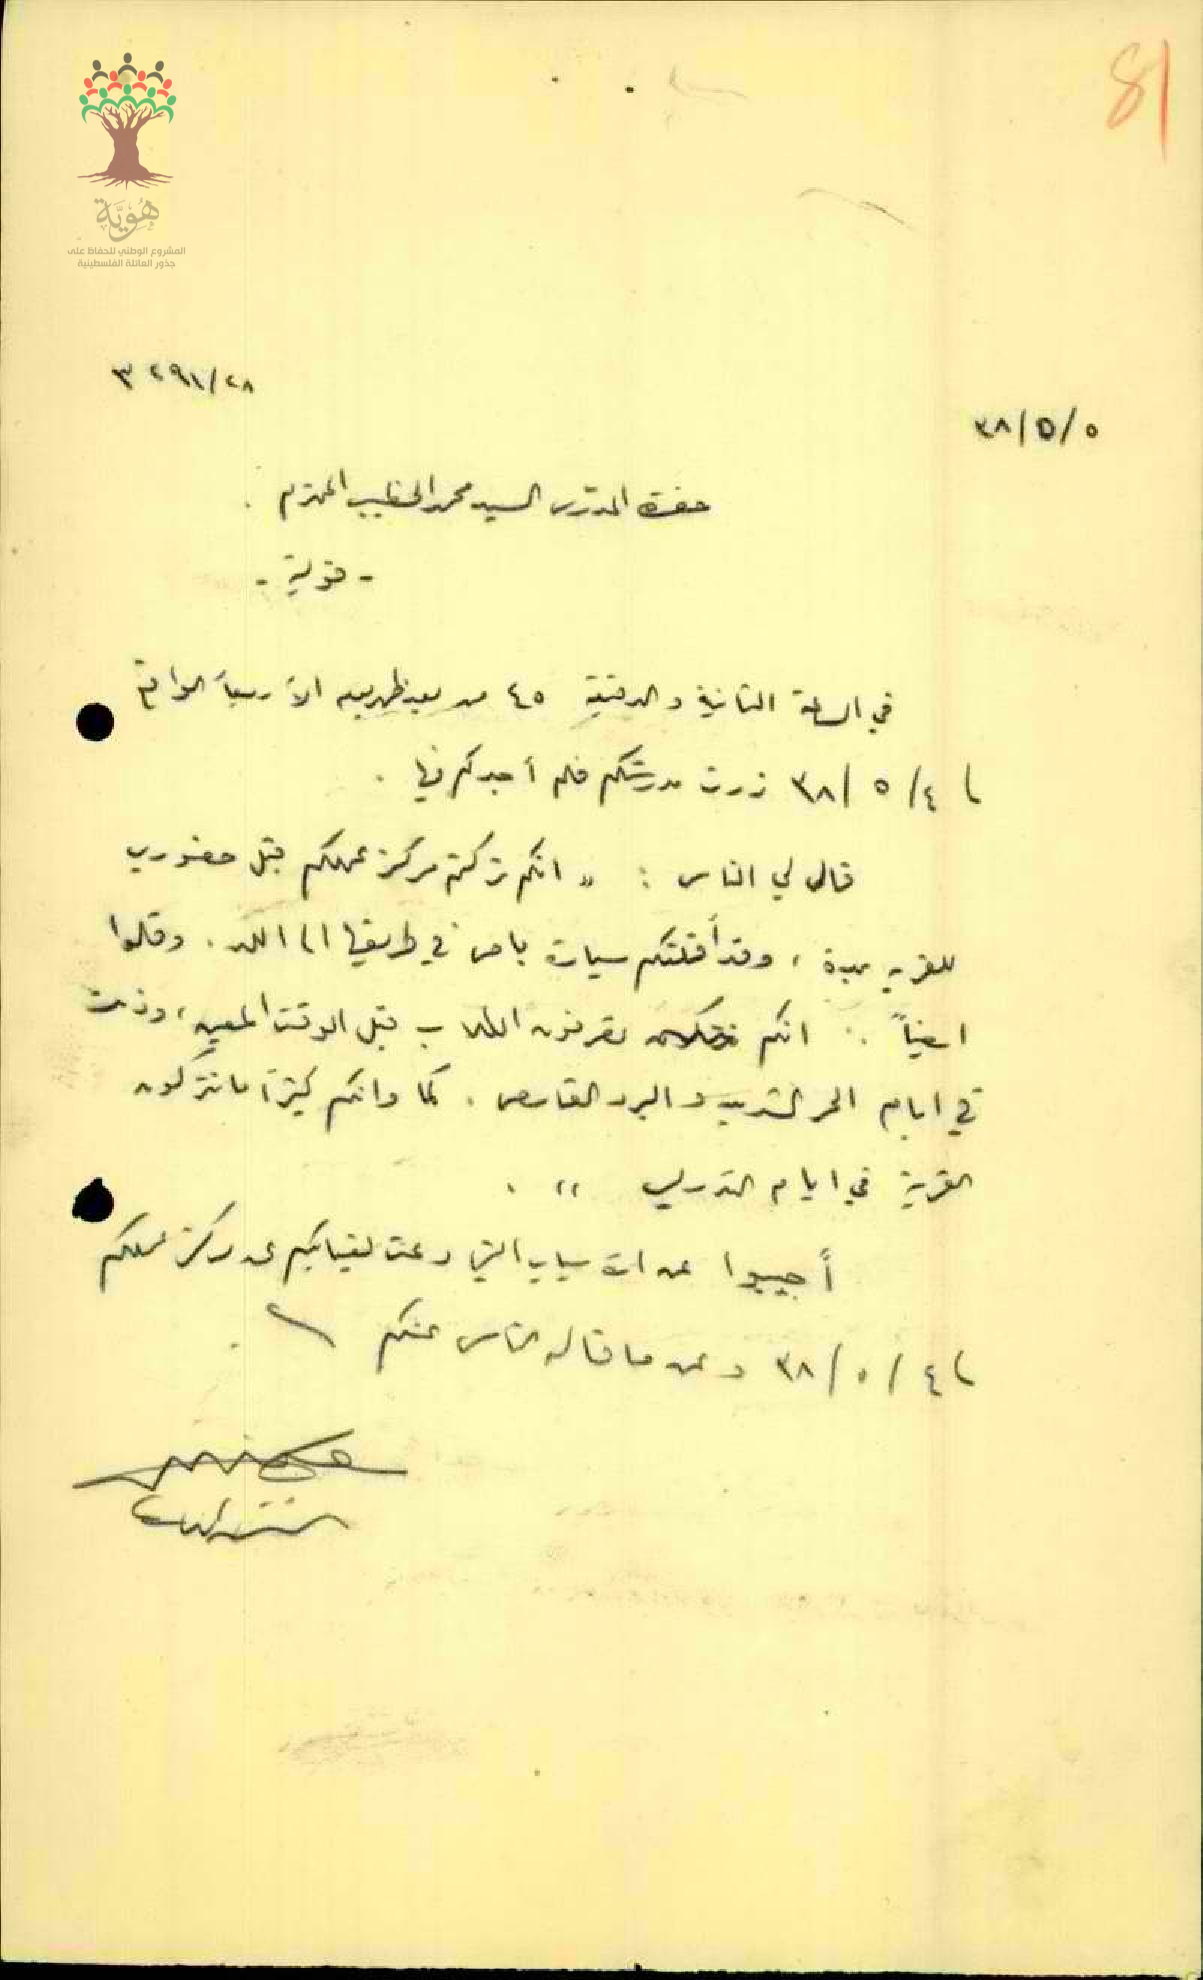 81
هُوِيَّة
المشروع الوطني للحفاظ على
جذور العائلة الفلسطينية
٣ ٢٩١/٢٨
٣٨/٥/٥
حضرة المدرس السيد محمد الخطيب المحترم .
- قولية -
في الساعة الثانية والدقيقة ٤٥ من بعد ظهر يوم الأربعاء الواقع
في ٣٨/٥/٤ زرت مدرستكم فلم أجدكم فيها .
قال لي الناس : " انكم تركتم مركز عملكم قبل حضوري
للقرية بمدة ، وقد أقلتكم سيارة باص في طريقها الى اللد . وقالوا
ايضاً : انكم تصرفون الطلاب قبل الوقت المعين ، وذلك
في ايام الحر الشديد والبرد القارص . كما وانكم كثيراً ما تتركون
القرية في ايام التدريس " .
أجيبوا عن الاسباب التي دعت لغيابكم عن مركز عملكم
في ٣٨/٥/٤ وعن ما قاله الناس عنكم .